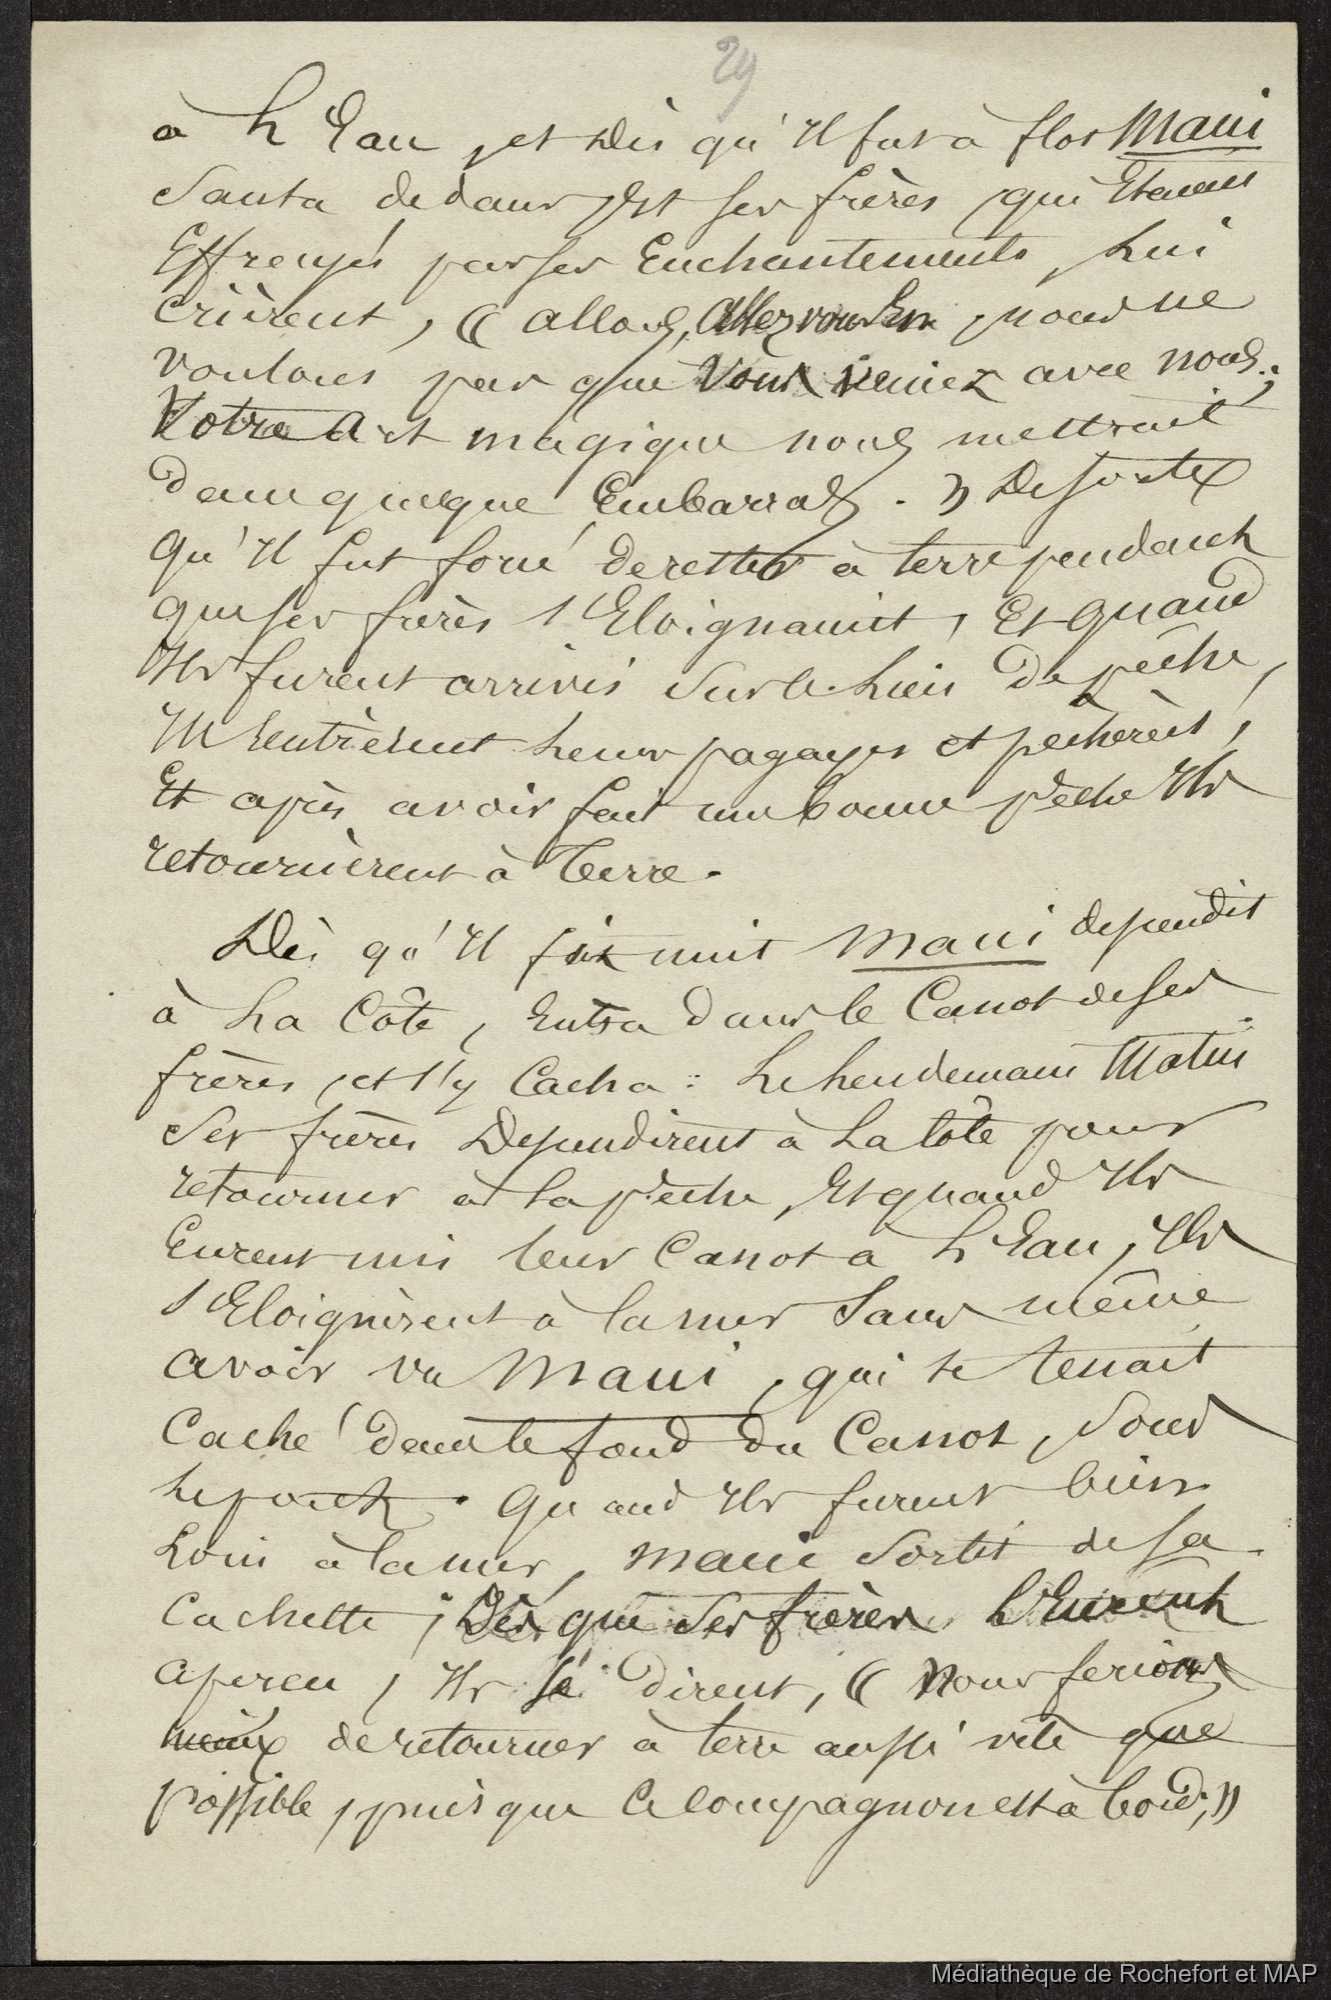 29
à L'Eau, et Dès qu'Il fut à flot Maui
Sauta dedans, Et ses frères, qui Etaient
Effrayés par ses Enchantements, Lui
crièrent, (( allons, allez vous En, nous ne
voulons pas que Vous veniez avec nous;
Votre Art magique nous mettrait
dans quelque Embarras. )) De sorte
qu'Il fut forcé de rester à terre pendant
que ses frères s'Eloignaient, Et quand
Ils furent arrivés sur le Lieu De pêche,
Ils Rentrèrent Leurs pagayes et pêchèrent,
Et après avoir fait une bonne pêche Ils
retournèrent à Terre.
Dès qu'Il fit nuit Maui descendit
à La Côte, Entra dans le Canot de ses
frères, et s'y Cacha: Le Lendemain Matin
Ses frères Descendirent à La Côte pour
retourner à la pêche, Et quand Ils
Eurent mis leur Canot à L'Eau, Ils
s'Eloignèrent à la mer Sans même
avoir vu Maui, qui se tenait
Caché dans le fond du Canot, Sous
le pont. Quand Ils furent bien
Loin à la mer, Maui Sortit de sa
Cachette; Dès que Ses frères L'Eurent
aperçu, Ils se dirent, (( Nous ferions
mieux de retourner à terre aussi vite que
possible, puisque Ce compagnon est à bord; ))
Médiathèque de Rochefort et MAP